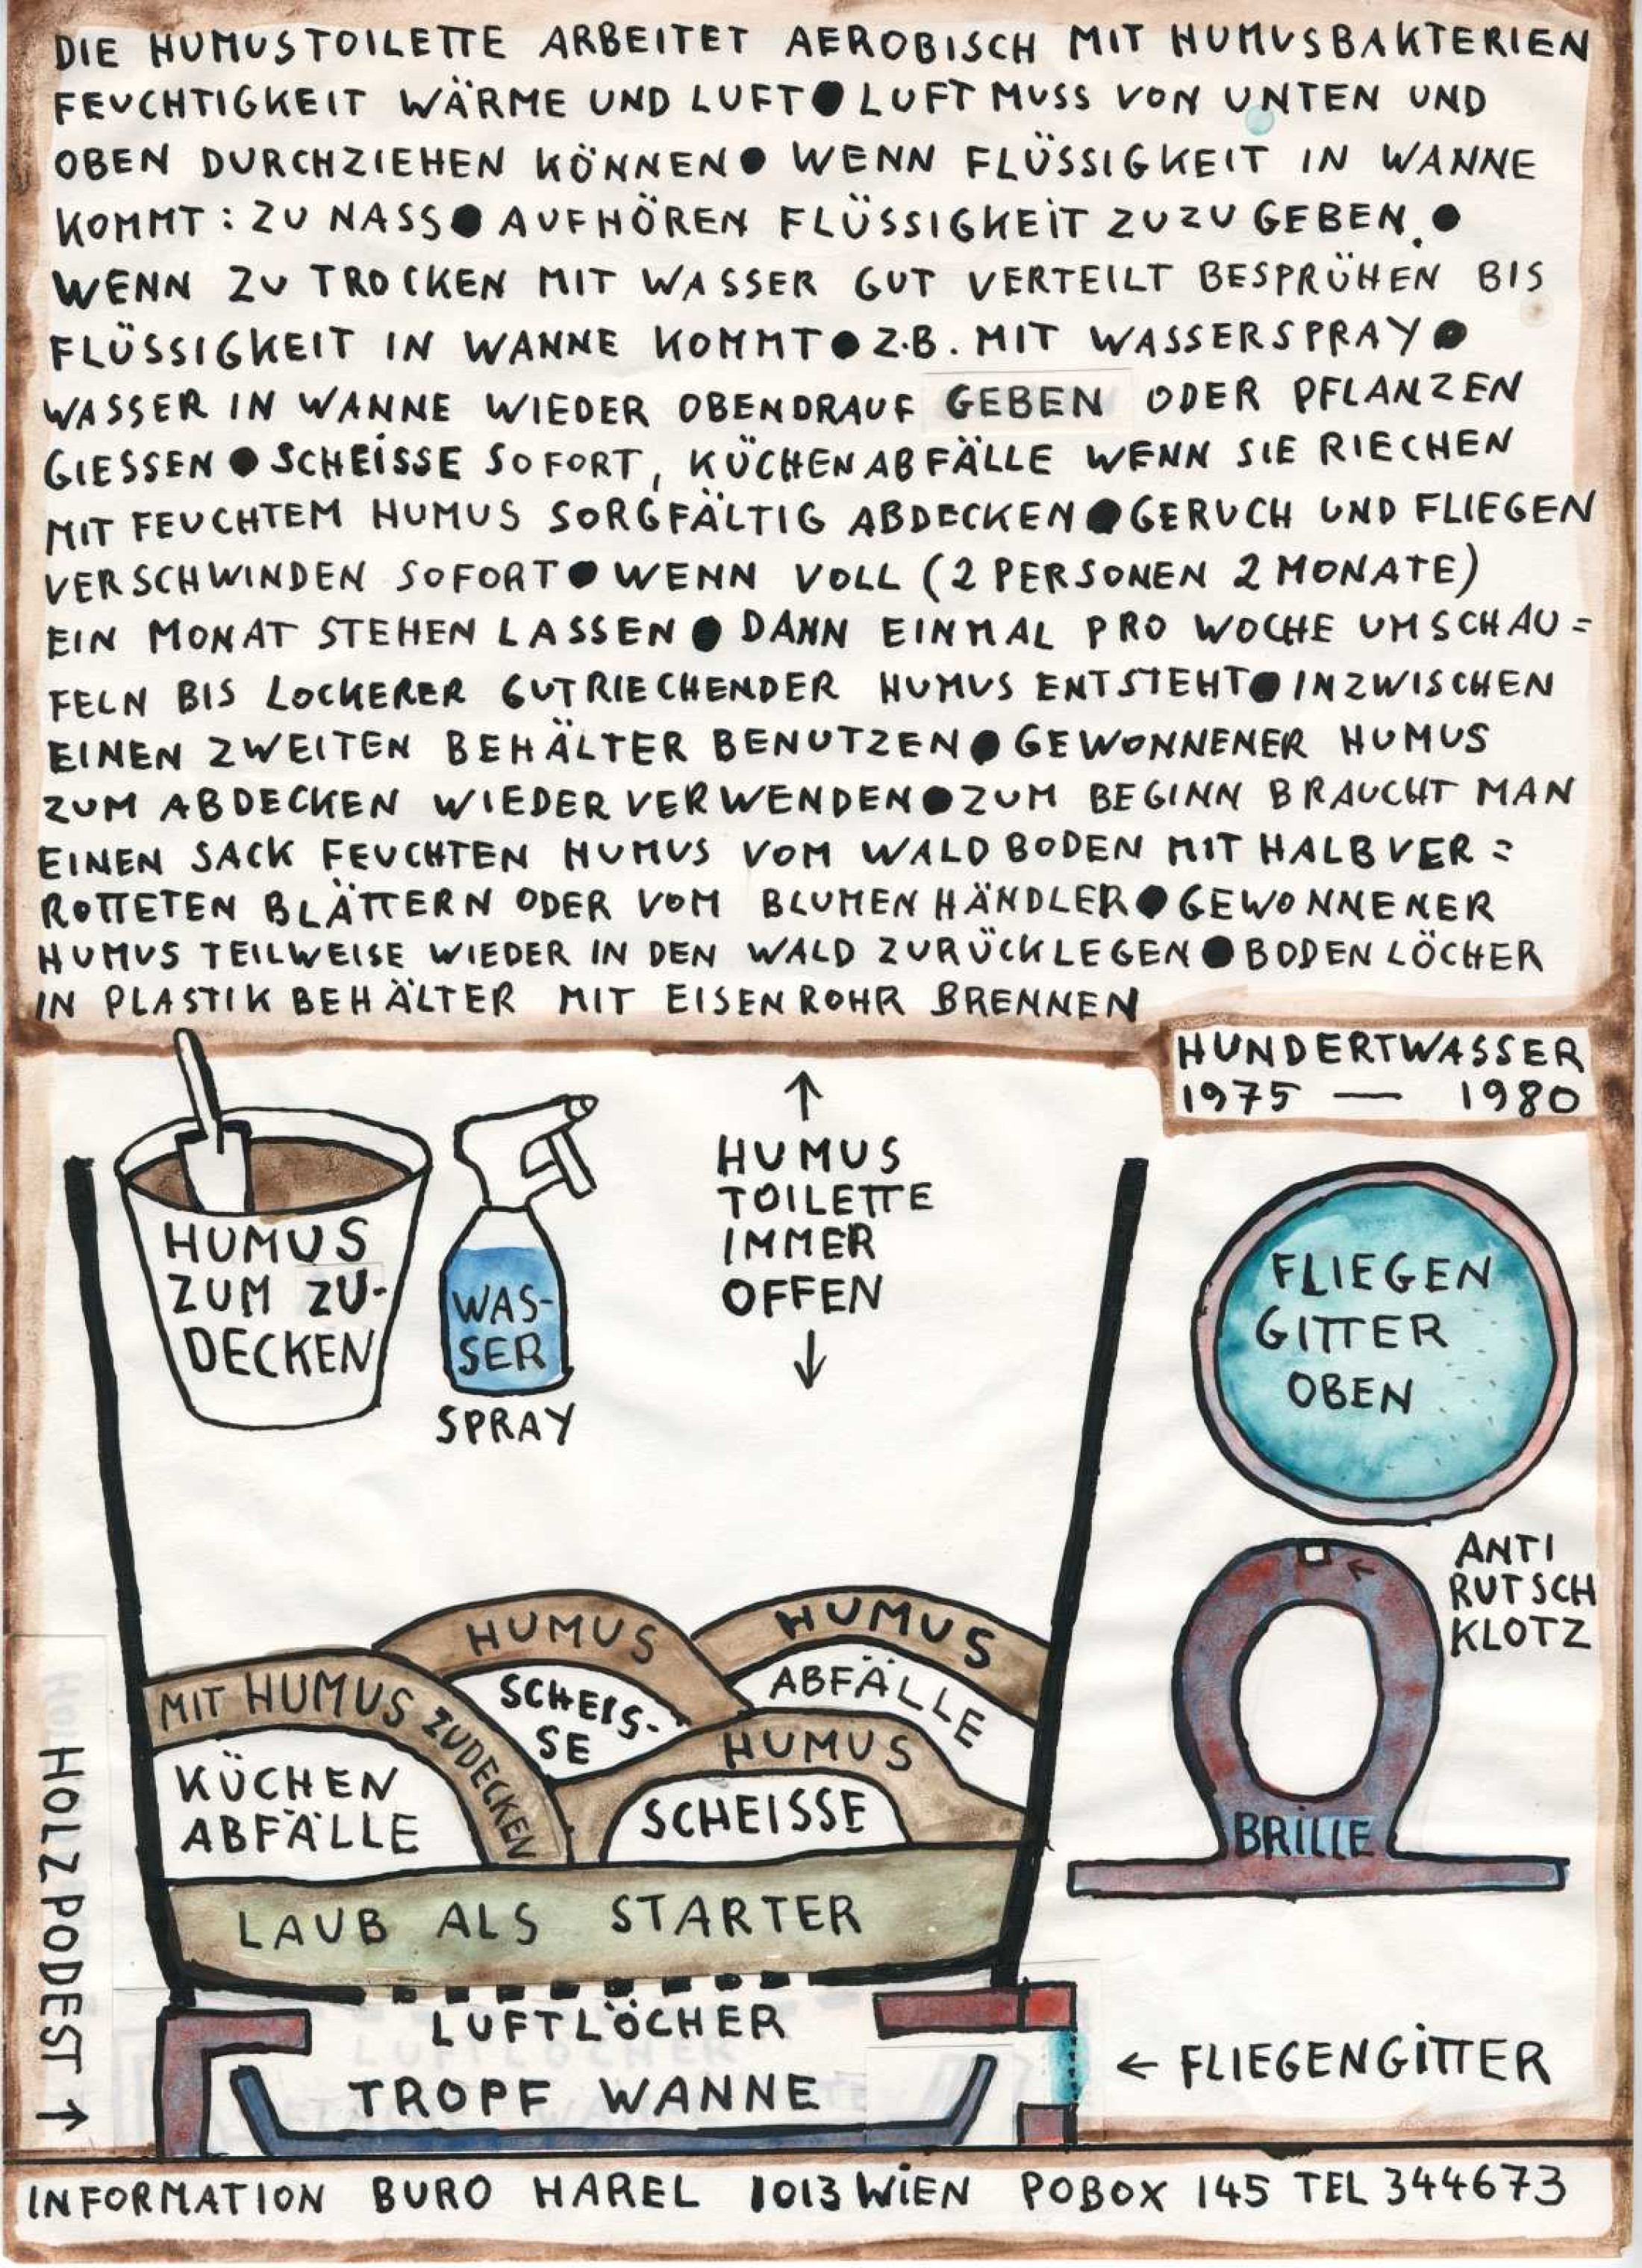 DIE HUMUSTOILETTE ARBEITET AEROBISCH MIT HUMUSBAKTERIEN
FEUCHTIGKEIT WÄRME UND LUFT ● LUFT MUSS VON UNTEN UND
OBEN DURCHZIEHEN KÖNNEN ● WENN FLÜSSIGKEIT IN WANNE
KOMMT : ZU NASS ● AUFHÖREN FLÜSSIGKEIT ZUZUGEBEN. ●
WENN ZU TROCKEN MIT WASSER GUT VERTEILT BESPRÜHEN BIS
FLÜSSIGKEIT IN WANNE KOMMT ● Z.B. MIT WASSERSPRAY ●
WASSER IN WANNE WIEDER OBENDRAUF GEBEN ODER PFLANZEN
GIESSEN ● SCHEISSE SOFORT, KÜCHENABFÄLLE WENN SIE RIECHEN
MIT FEUCHTEM HUMUS SORGFÄLTIG ABDECKEN ● GERUCH UND FLIEGEN
VERSCHWINDEN SOFORT ● WENN VOLL (2 PERSONEN 2 MONATE)
EIN MONAT STEHEN LASSEN ● DANN EINMAL PRO WOCHE UMSCHAU=
FELN BIS LOCKERER GUTRIECHENDER HUMUS ENTSTEHT ● INZWISCHEN
EINEN ZWEITEN BEHÄLTER BENUTZEN ● GEWONNENER HUMUS
ZUM ABDECKEN WIEDER VERWENDEN ● ZUM BEGINN BRAUCHT MAN
EINEN SACK FEUCHTEN HUMUS VOM WALDBODEN MIT HALBVER=
ROTTETEN BLÄTTERN ODER VOM BLUMENHÄNDLER ● GEWONNENER
HUMUS TEILWEISE WIEDER IN DEN WALD ZURÜCKLEGEN ● BODENLÖCHER
IN PLASTIKBEHÄLTER MIT EISENROHR BRENNEN
HUNDERTWASSER
1975 — 1980
HUMUS
ZUM ZU-
DECKEN
WAS-
SER
SPRAY
↑
HUMUS
TOILETTE
IMMER
OFFEN
↓
FLIEGEN
GITTER
OBEN
ANTI
RUTSCH
KLOTZ
←
BRILLE
HUMUS
HUMUS
MIT HUMUS ZUDECKEN
SCHEIS-
SE
ABFÄLLE
HUMUS
KÜCHEN
ABFÄLLE
SCHEISSE
LAUB ALS STARTER
LUFTLÖCHER
TROPF WANNE
HOLZPODEST →
← FLIEGENGITTER
INFORMATION BURO HAREL 1013 WIEN POBOX 145 TEL 344673